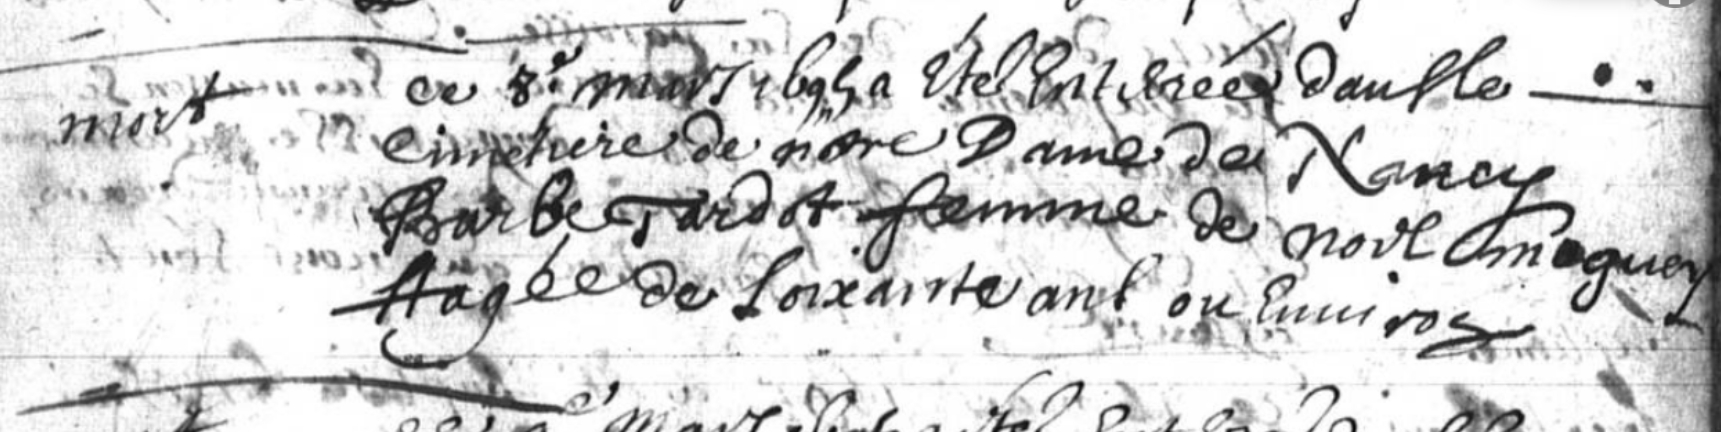 mort
ce 8e mars 1695 a Eté Entérée dans le
cimetiere de nõtre Dame de Nancy
Barbe Tardot femme de noel
Aagée de soixainte ans ou Enuiron